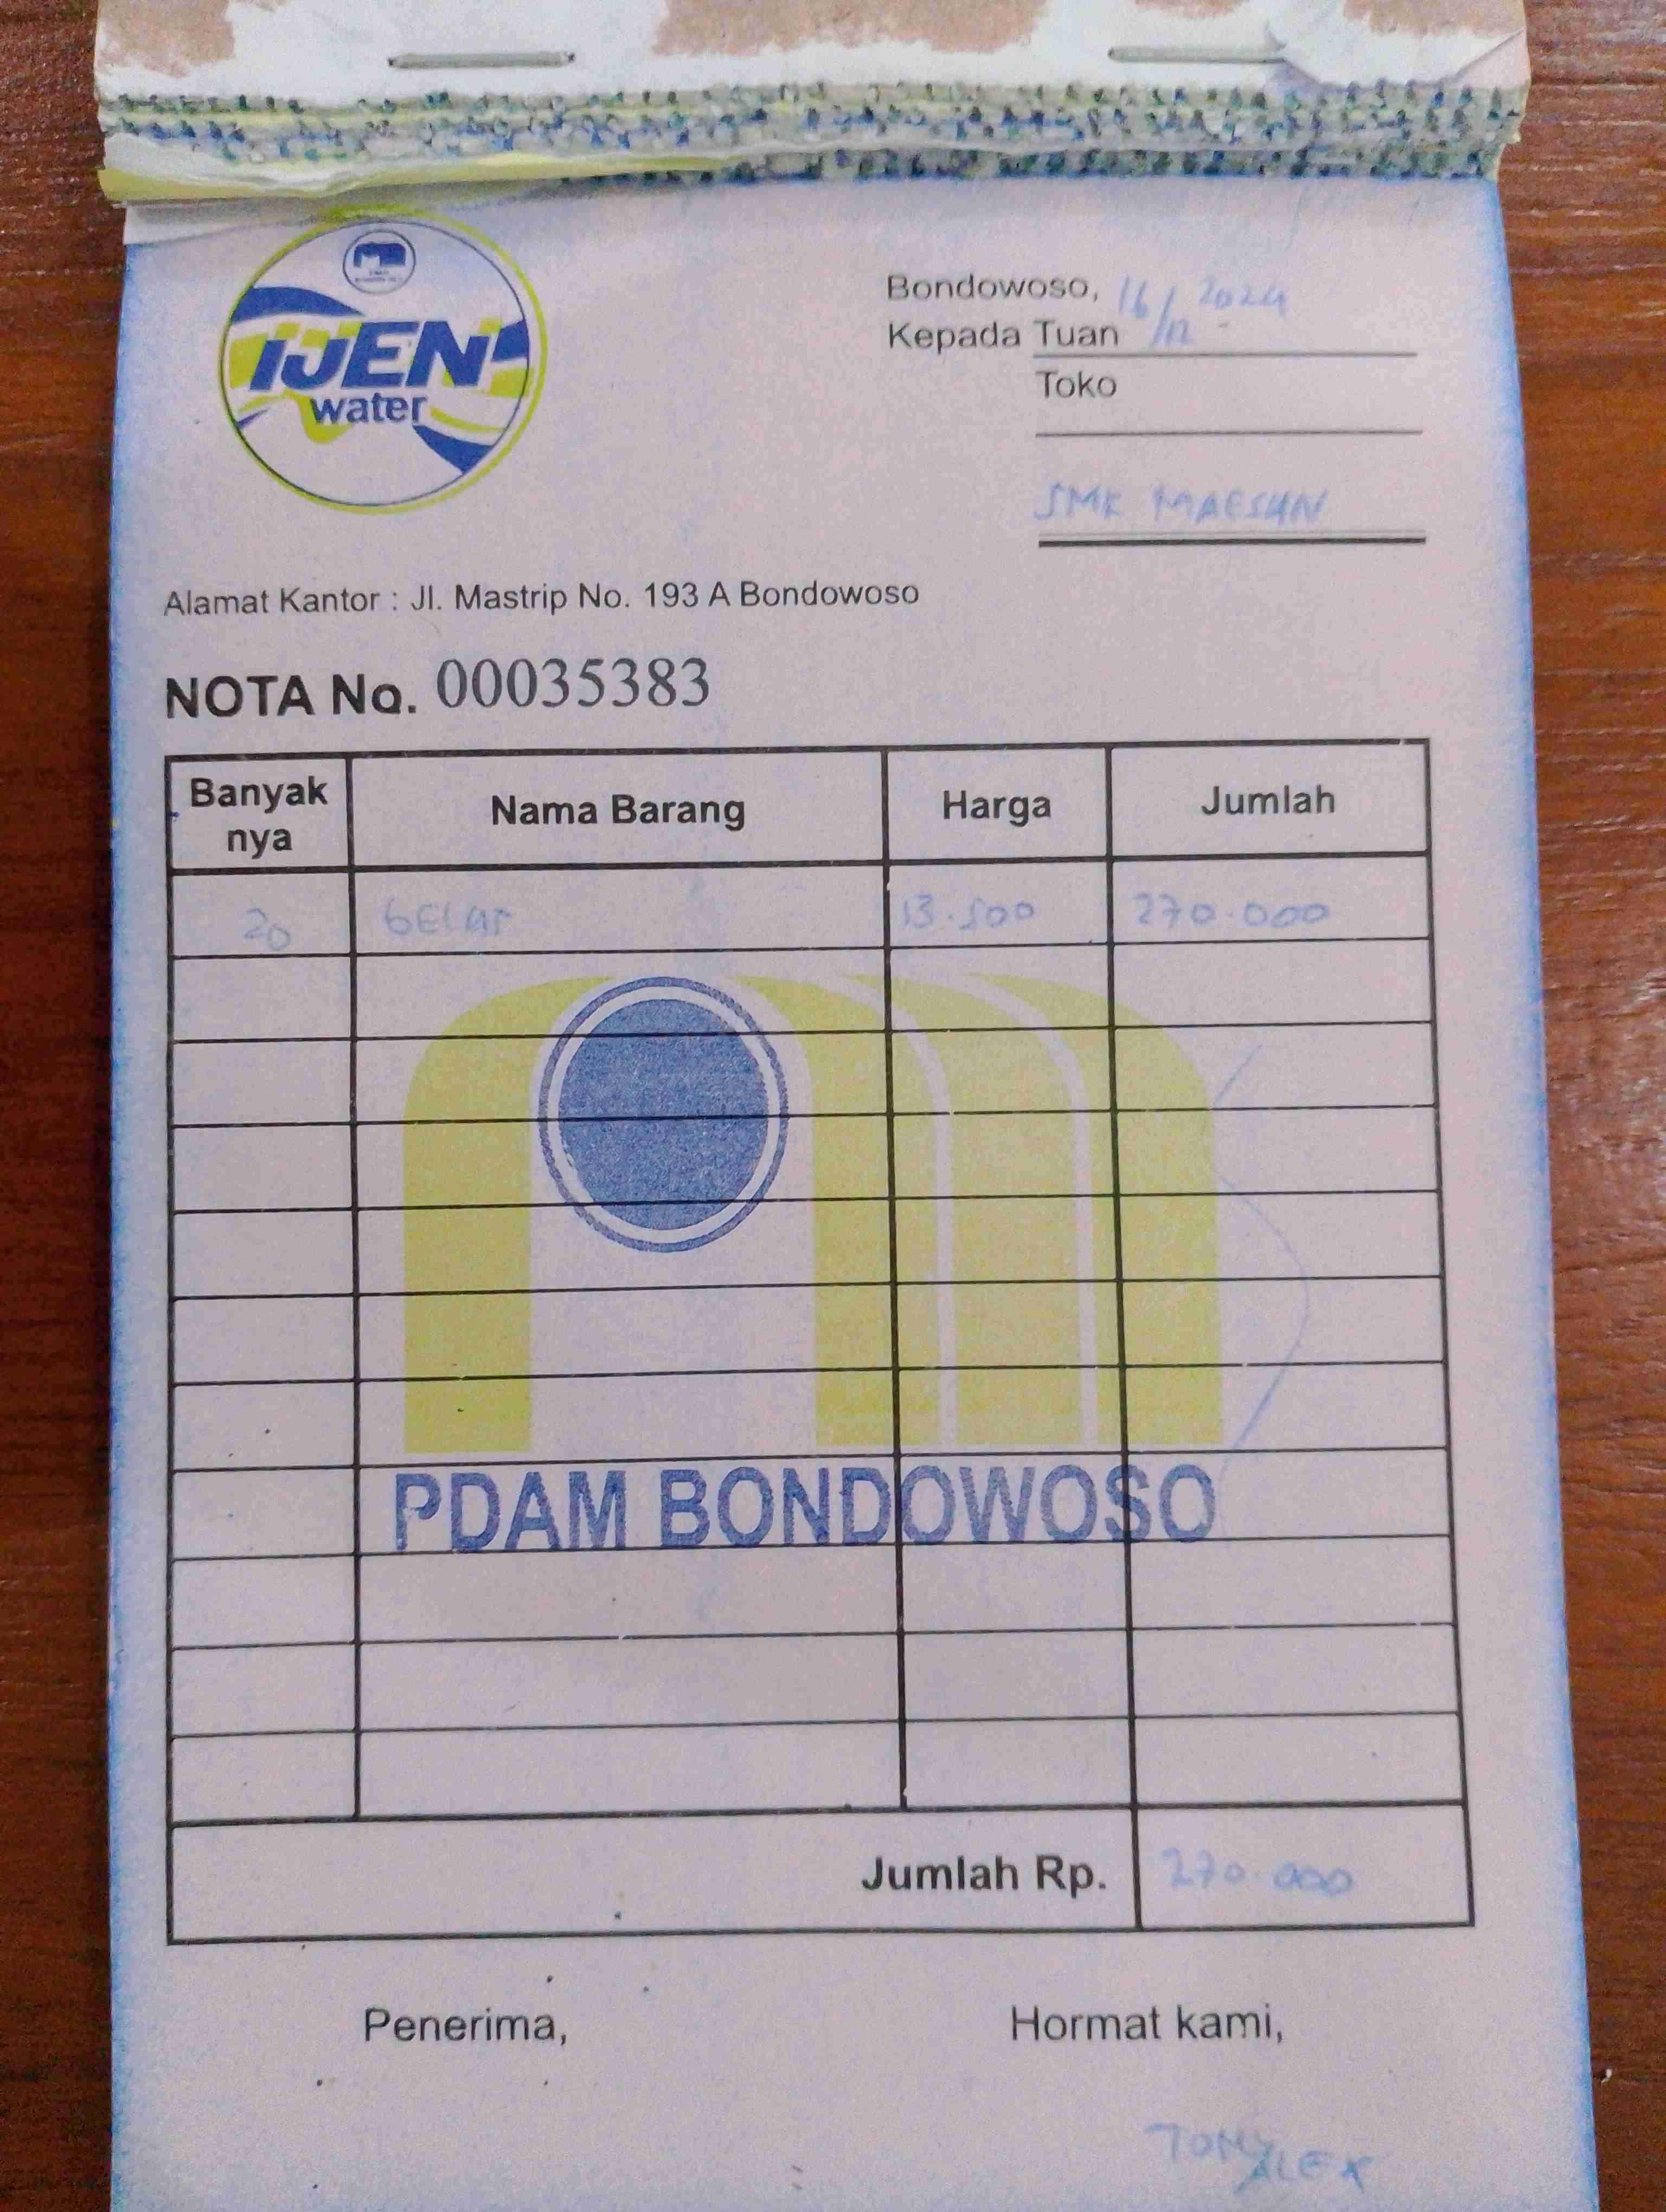 IJEN
water
Bondowoso, 16/12 2024
Kepada Tuan
Toko
SMK MAESAN
Alamat Kantor : Jl. Mastrip No. 193 A Bondowoso
NOTA No. 00035383
Banyak nya Nama Barang Harga Jumlah
20 GELAS 13.500 270.000
PDAM BONDOWOSO
Jumlah Rp. 270.000
Penerima, Hormat kami,
TOMY
ALEX